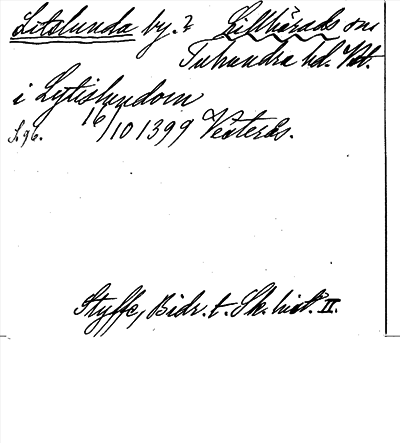 Litslunda by.? Lillhärads sn
Tuhundra hd. Vstm.
i Lytislundom
S. 96. 16/10 1399 Västerås.
Styffe, Bidr. t. Sk. hist. II.